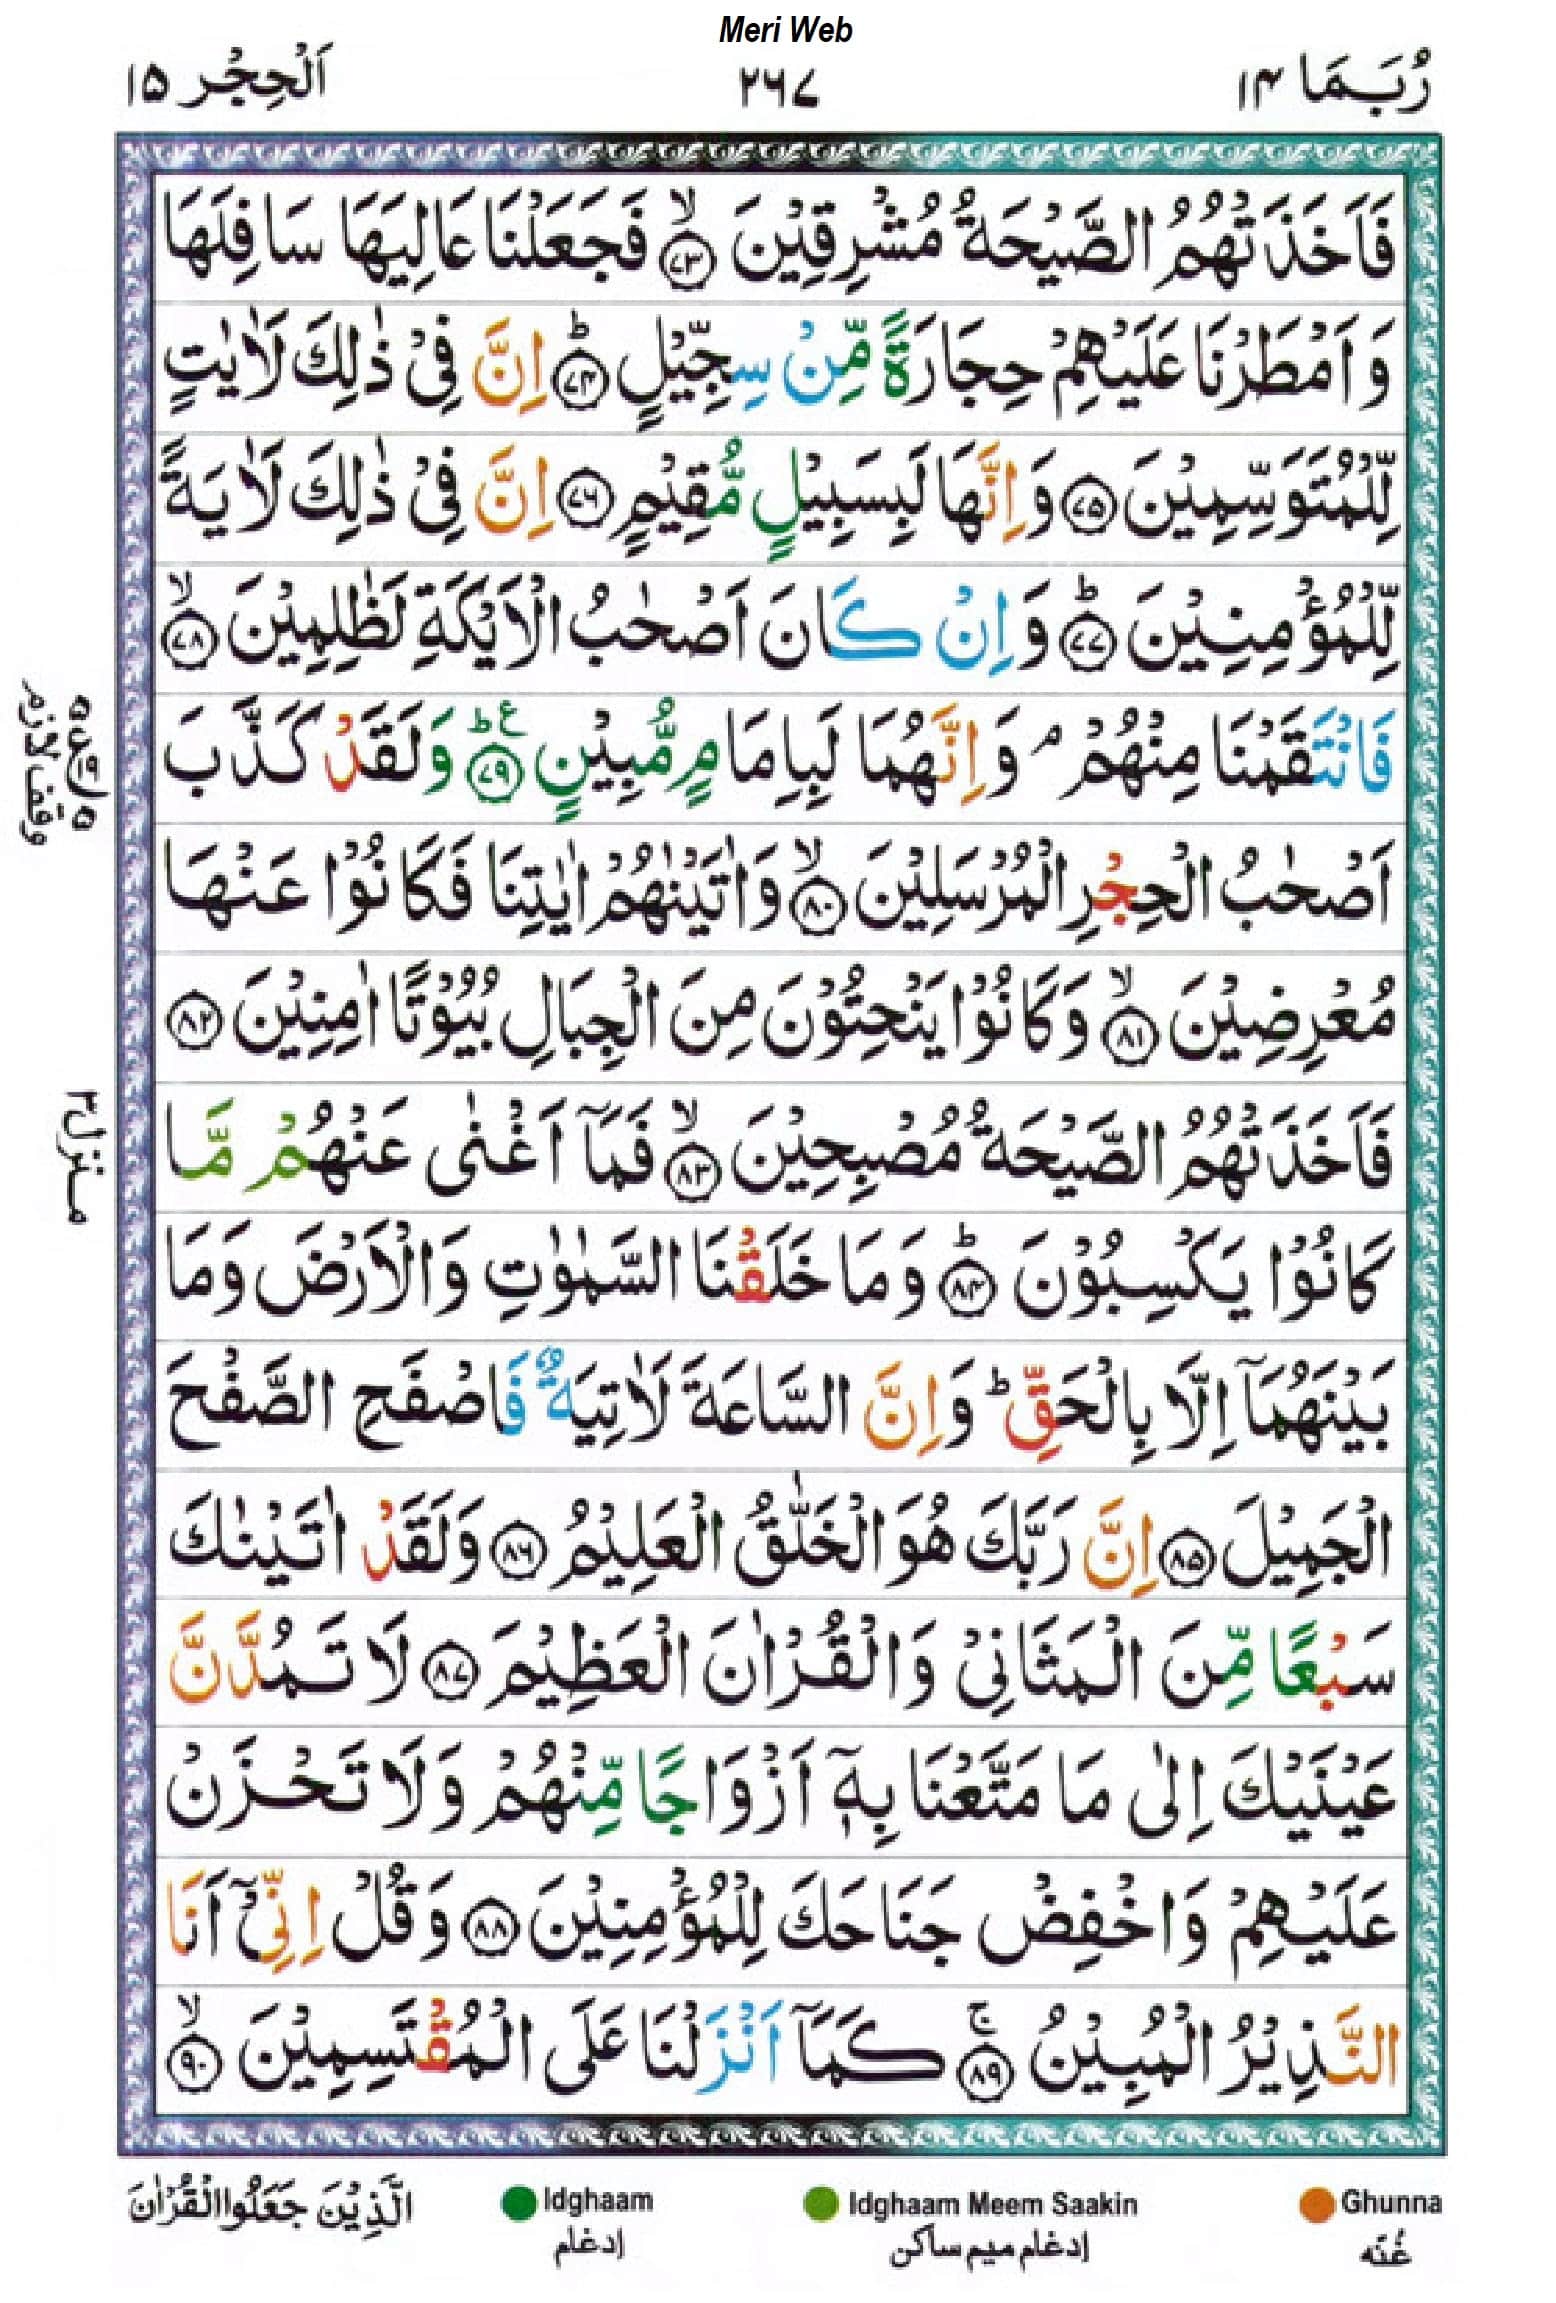 Meri Web
رُبَمَا ۱۴
۲۶۷
اَلْحِجْر ۱۵
فَاَخَذَتْهُمُ الصَّيْحَةُ مُشْرِقِيْنَ ۙ﴿۷۳﴾ فَجَعَلْنَا عَالِيَهَا سَافِلَهَا
وَ اَمْطَرْنَا عَلَيْهِمْ حِجَارَةً مِّنْ سِجِّيْلٍ ؕ﴿۷۴﴾ اِنَّ فِيْ ذٰلِكَ لَاٰيٰتٍ
لِّلْمُتَوَسِّمِيْنَ ﴿۷۵﴾ وَ اِنَّهَا لَبِسَبِيْلٍ مُّقِيْمٍ ﴿۷۶﴾ اِنَّ فِيْ ذٰلِكَ لَاٰيَةً
لِّلْمُؤْمِنِيْنَ ؕ﴿۷۷﴾ وَ اِنْ كَانَ اَصْحٰبُ الْاَيْكَةِ لَظٰلِمِيْنَ ۙ﴿۷۸﴾
فَانْتَقَمْنَا مِنْهُمْ ۘ وَ اِنَّهُمَا لَبِاِمَامٍ مُّبِيْنٍ ؕ﴿۷۹﴾ع وَلَقَدْ كَذَّبَ
اَصْحٰبُ الْحِجْرِ الْمُرْسَلِيْنَ ۙ﴿۸۰﴾ وَ اٰتَيْنٰهُمْ اٰيٰتِنَا فَكَانُوْا عَنْهَا
مُعْرِضِيْنَ ۙ﴿۸۱﴾ وَ كَانُوْا يَنْحِتُوْنَ مِنَ الْجِبَالِ بُيُوْتًا اٰمِنِيْنَ ﴿۸۲﴾
فَاَخَذَتْهُمُ الصَّيْحَةُ مُصْبِحِيْنَ ۙ﴿۸۳﴾ فَمَآ اَغْنٰى عَنْهُمْ مَّا
كَانُوْا يَكْسِبُوْنَ ؕ﴿۸۴﴾ وَ مَا خَلَقْنَا السَّمٰوٰتِ وَالْاَرْضَ وَمَا
بَيْنَهُمَآ اِلَّا بِالْحَقِّ ؕ وَ اِنَّ السَّاعَةَ لَاٰتِيَةٌ فَاصْفَحِ الصَّفْحَ
الْجَمِيْلَ ﴿۸۵﴾ اِنَّ رَبَّكَ هُوَ الْخَلّٰقُ الْعَلِيْمُ ﴿۸۶﴾ وَلَقَدْ اٰتَيْنٰكَ
سَبْعًا مِّنَ الْمَثَانِيْ وَالْقُرْاٰنَ الْعَظِيْمَ ﴿۸۷﴾ لَا تَمُدَّنَّ
عَيْنَيْكَ اِلٰى مَا مَتَّعْنَا بِهٖٓ اَزْوَاجًا مِّنْهُمْ وَلَا تَحْزَنْ
عَلَيْهِمْ وَاخْفِضْ جَنَاحَكَ لِلْمُؤْمِنِيْنَ ﴿۸۸﴾ وَ قُلْ اِنِّيْٓ اَنَا
النَّذِيْرُ الْمُبِيْنُ ۚ﴿۸۹﴾ كَمَآ اَنْزَلْنَا عَلَى الْمُقْتَسِمِيْنَ ۙ﴿۹۰﴾
وقف لازم
منزل ۳
Ghunna
غُنّه
Idghaam Meem Saakin
إدغام ميم ساكن
Idghaam
إدغام
الَّذِيْنَ جَعَلُوا الْقُرْاٰنَ